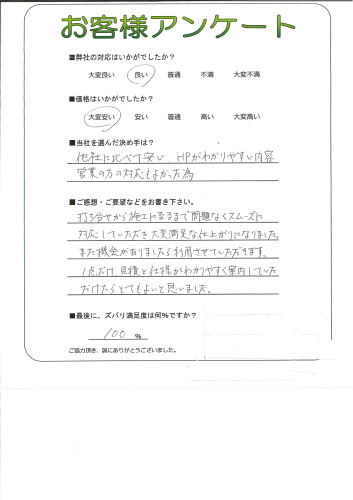 お客様アンケート
■弊社の対応はいかがでしたか？
大変良い 良い 普通 不満 大変不満
■価格はいかがでしたか？
大変安い 安い 普通 高い 大変高い
■当社を選んだ決め手は？
他社に比べて安い、HPがわかりやすい内容
営業の方の対応もよかった為
■ご感想・ご要望などをお書き下さい。
打ち合せから施工に至るまで問題なくスムーズに
対応していただき大変満足な仕上がりになりました。
また機会がありましたら利用させていただきます。
1点だけ、見積と仕様がわかりやすく案内していた
だけたらとてもよいと思いました。
■最後に、ズバリ満足度は何％ですか？
100 %
ご協力頂き、誠にありがとうございました。